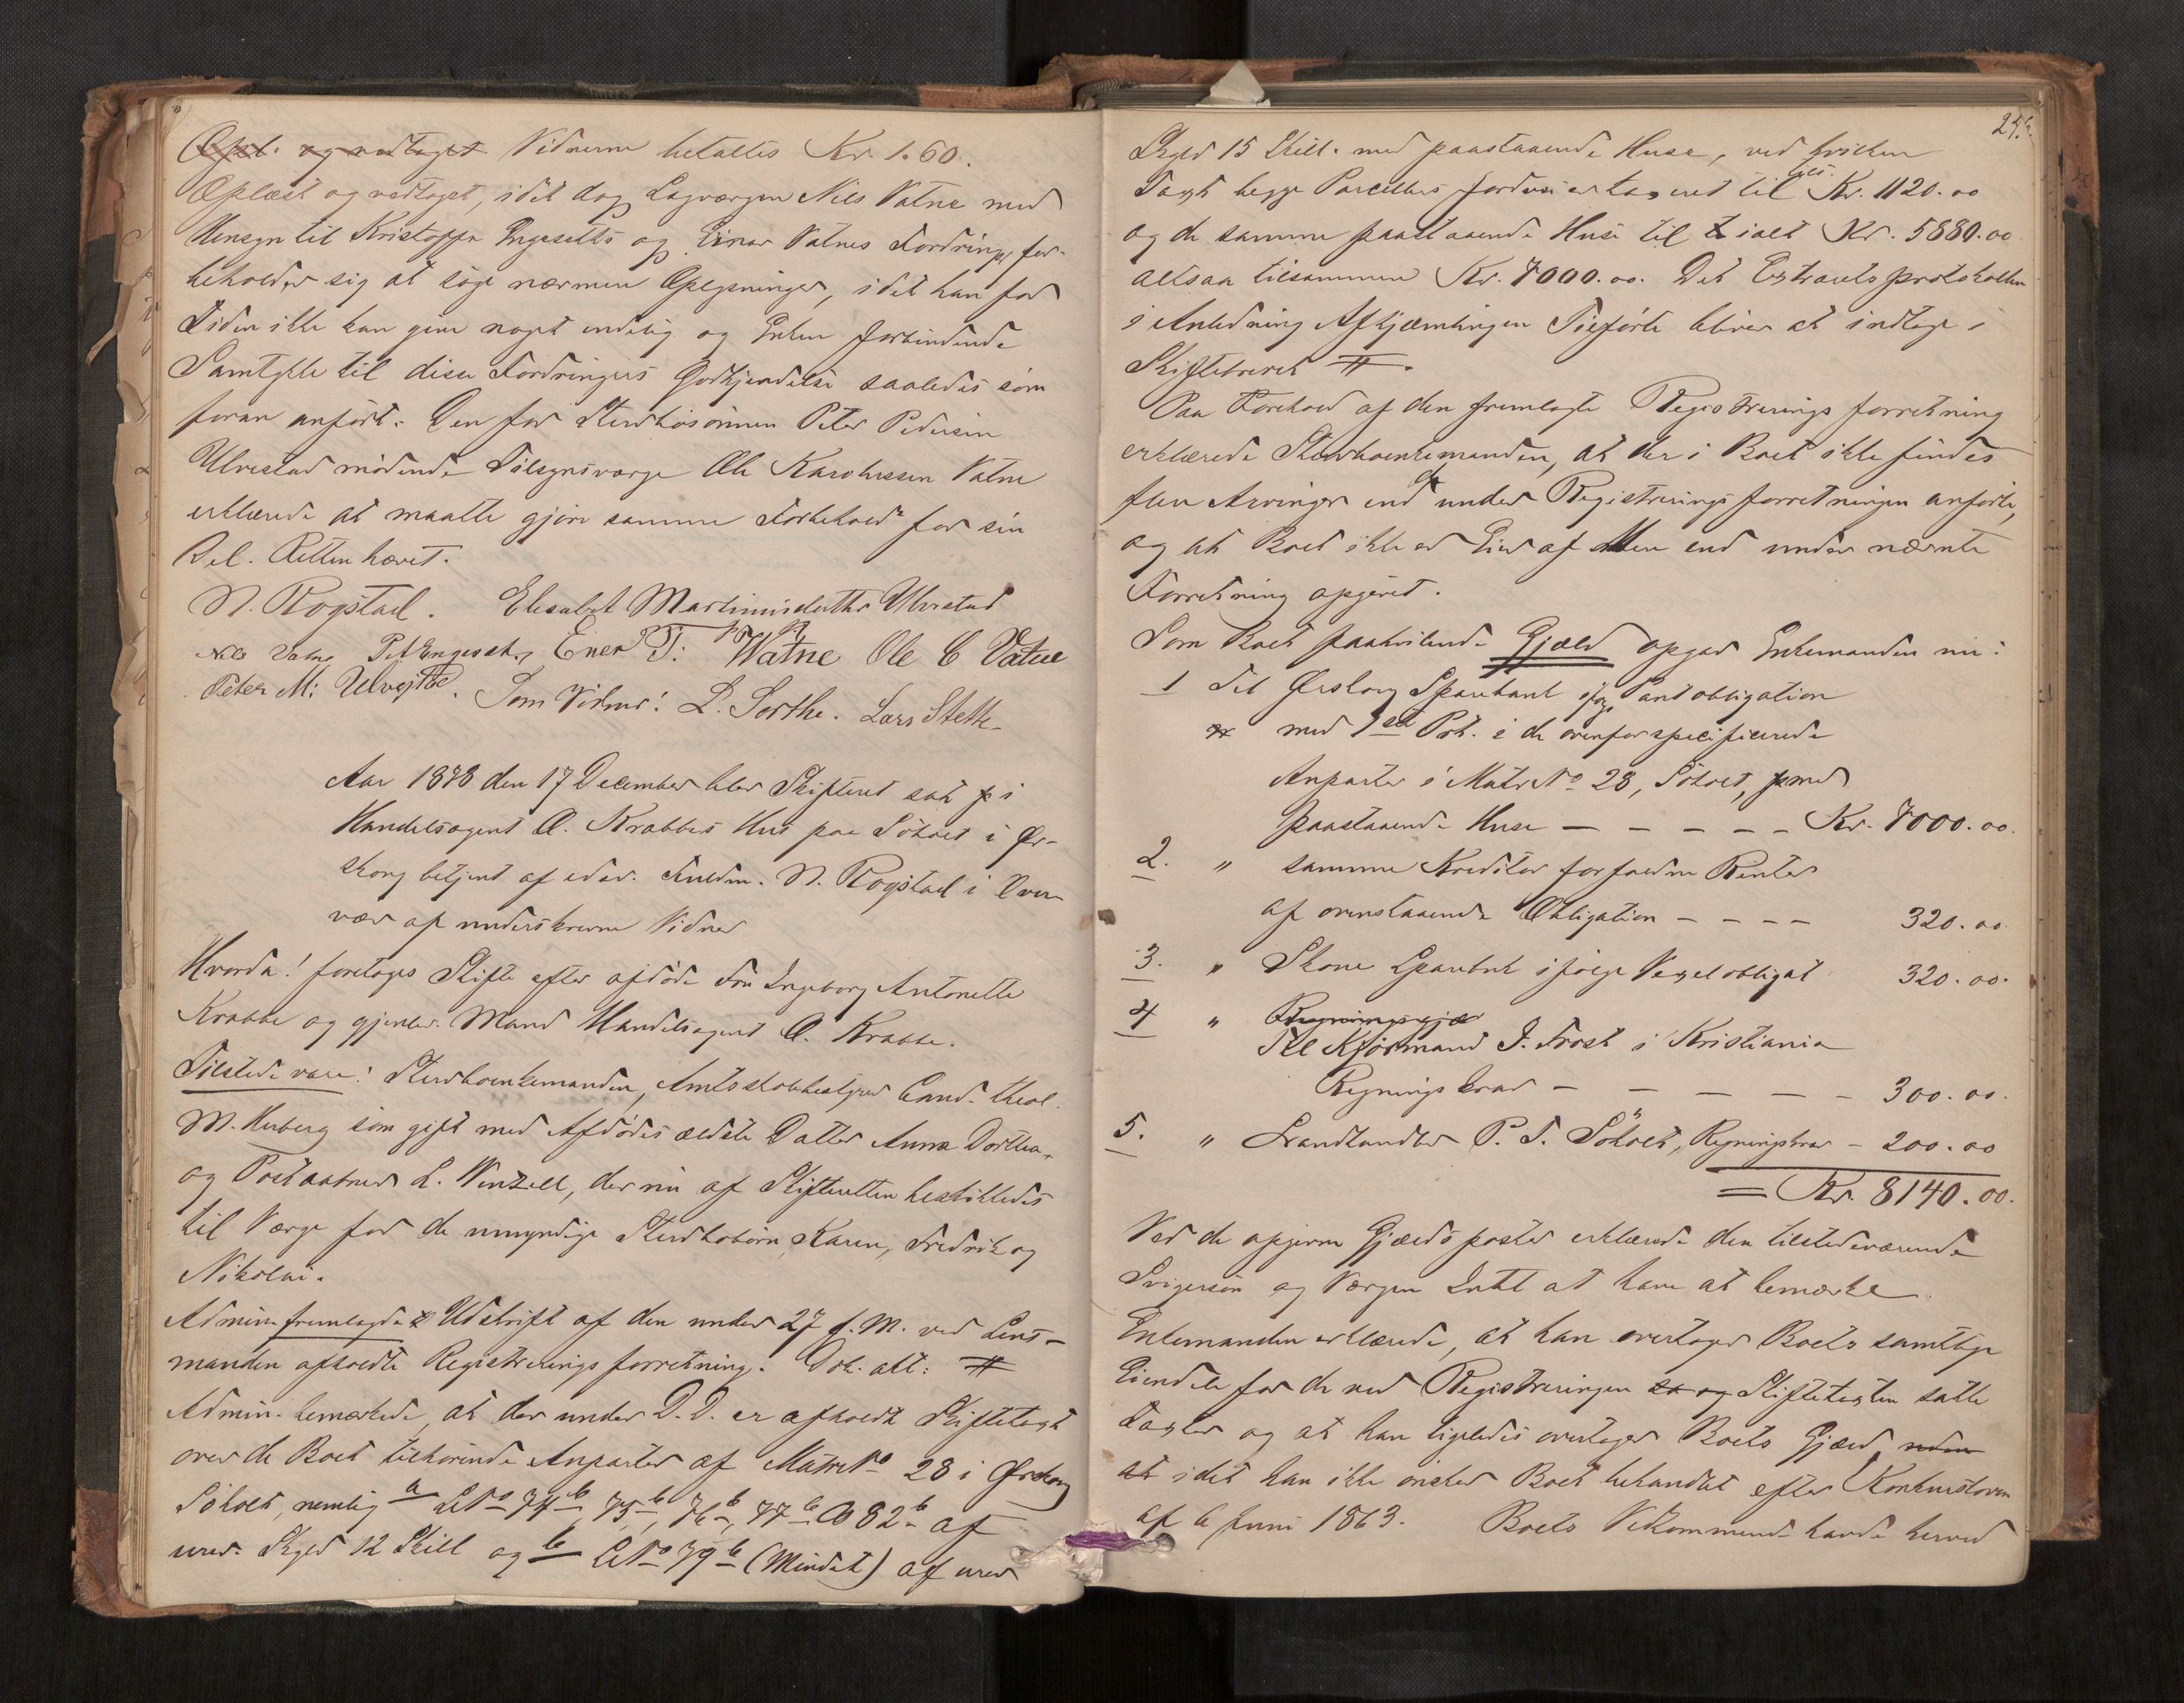 Opl. og vedtaget. Vidnerne betaltes Kr. 1.60.
Oplæst og vedtaget, idet dog Lagværgen Nils Vatne med
Hensyn til Kristoffer Engesetts og Einar Vatnes Fordring for-
beholder sig at søge nærmere Oplysninger, idet han for
Tiden ikke kan give noget endelig og Enken forbindende
Samtykke til disse Fordringers Godkjendelse saaledes som
foran anført. Den for Stervbosønnen Peter Pedersen
Ulvestad mødende Tilsynsværge Ole Karolussen Vatne
erklærede at maatte gjøre samme Forbehold for sin
Del. Retten hævet.
N. Rogstad. Elisabet Martinusdatter Ulvestad
Nils Vatne P. Engeset. Ener T. Watne Ole C Vatne
Peter M: Ulvestad. Som Vidner: L. Sorthe. Lars Stette
Aar 1878 den 17 December blev Skifteret sat i
Handelsagent O. Krabbes Hus paa Søholt i Ør-
skoug betjent af edsv. Fuldm. N. Rogstad i Over-
vær af underskrevne Vidner
Hvorda! foretoges Skifte efter afdøde Fru Ingeborg Antonette
Krabbe og gjenlev. Mand Handelsagent O. Krabbe.
Tilstede vare: Stervboenkemanden, Amtsskolebestyrer Cand. theol.
M. Huberg som gift med Afdødes ældste Datter Anna Dorthea
og Postaabner L. Winzell, der nu af Skifteretten beskikkedes
til Værge for de umyndige Stervbobørn Karen, Fredrik og
Nikolai.
Admin. fremlagde Udskrift af den under 27 f. M. ved Lens-
manden afholdte Registreringsforretning. Dok. alt: #
Admin. bemærkede, at der under D. D. er afholdt Skiftetaxt
over de Boet tilhørende Anparter af Matr No 28 i Ørskoug
Søholt, nemlig a LNo 74b, 75b, 76b, 77b & 82b af
urev. Skyld 12 Skill og b LNo 79b (Mindet) af urev
Skyld 15 Skill. med paastaaende Huse, ved hvilken
Taxt begge Parcellers Jordvei er taxeret til Kr. 1120.00
og de samme paastaaende Huse til ialt Kr. 5880.00
altsaa tilsammen Kr. 7000.00. Det Extraretsprotokollen
i Anledning Afhjemlingen Tilførte bliver at indtage i
Skiftebrevet #.
Paa Forehold af den fremlagte Registreringsforretning
erklærede Stervboenkemanden, at der i Boet ikke findes
flere Arvinger end de under Registreringsforretningen anførte,
og at Boet ikke er Eier af Mere end under nævnte
Forretning opgivet.
Som Boet paahvilende Gjæld opgav Enkemanden nu:
1 Til Ørskoug Sparebank ifølge Pantobligation
med 1ste Prt. i de ovenfor specificerede
Anparter i Matr No 28, Søholt, med
paastaaende Huse — — — — — Kr. 7000.00.
2. " samme Kreditor forfaldne Renter
af ovenstaaende Obligation — — — — 320.00.
3. " Skoue Sparebnk ifølge Vexelobligat 320.00.
4 " Regningsgjæ
Til Kjøbmand J. Frost i Kristiania
Regningskrav — — — — — 300.00.
5. " Landhandler P. T. Søholt, Regningskrav — 200.00
= Kr. 8140.00.
Ved de opgivne Gjældsposter erklærede den tilstedeværende
Svigersøn og Værgen Intet at have at bemærke
Enkemanden erklærede, at han overtager Boets samtlige
Eiendele for de ved Registreringen og Skiftetaxten satte
Taxter og at han ligeledes overtager Boets Gjæld, uden
at idet han ikke ønsker Boet behandlet efter Konkursloven
af 6 Juni 1863. Boets Vedkommende havde herved